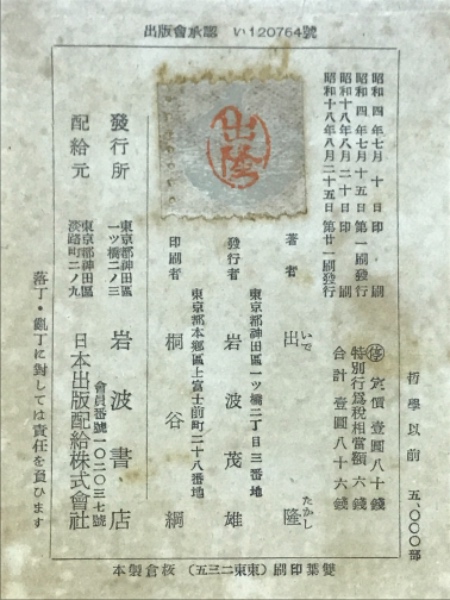 出版會承認 い120764號
哲學以前 五,〇〇〇部
昭和四年七月十日印刷
昭和四年七月十五日第一刷發行
昭和十八年八月二十日印刷
昭和十八年八月二十五日第廿一刷發行
停 定價壹圓八十錢
特別行爲稅相當額六錢
合計壹圓八十六錢
出隆
著者 出隆
いで たかし
東京都神田區一ツ橋二丁目三番地
發行者 岩波茂雄
東京都本鄕區上富士前町二十八番地
印刷者 桐谷綱
發行所 東京都神田區一ツ橋二ノ三 岩波書店
會員番號一〇二〇三七號
配給元 東京都神田區淡路町二ノ九 日本出版配給株式會社
落丁・亂丁に對しては責任を負ひます
雙葉印刷(東東二三五) 板倉製本